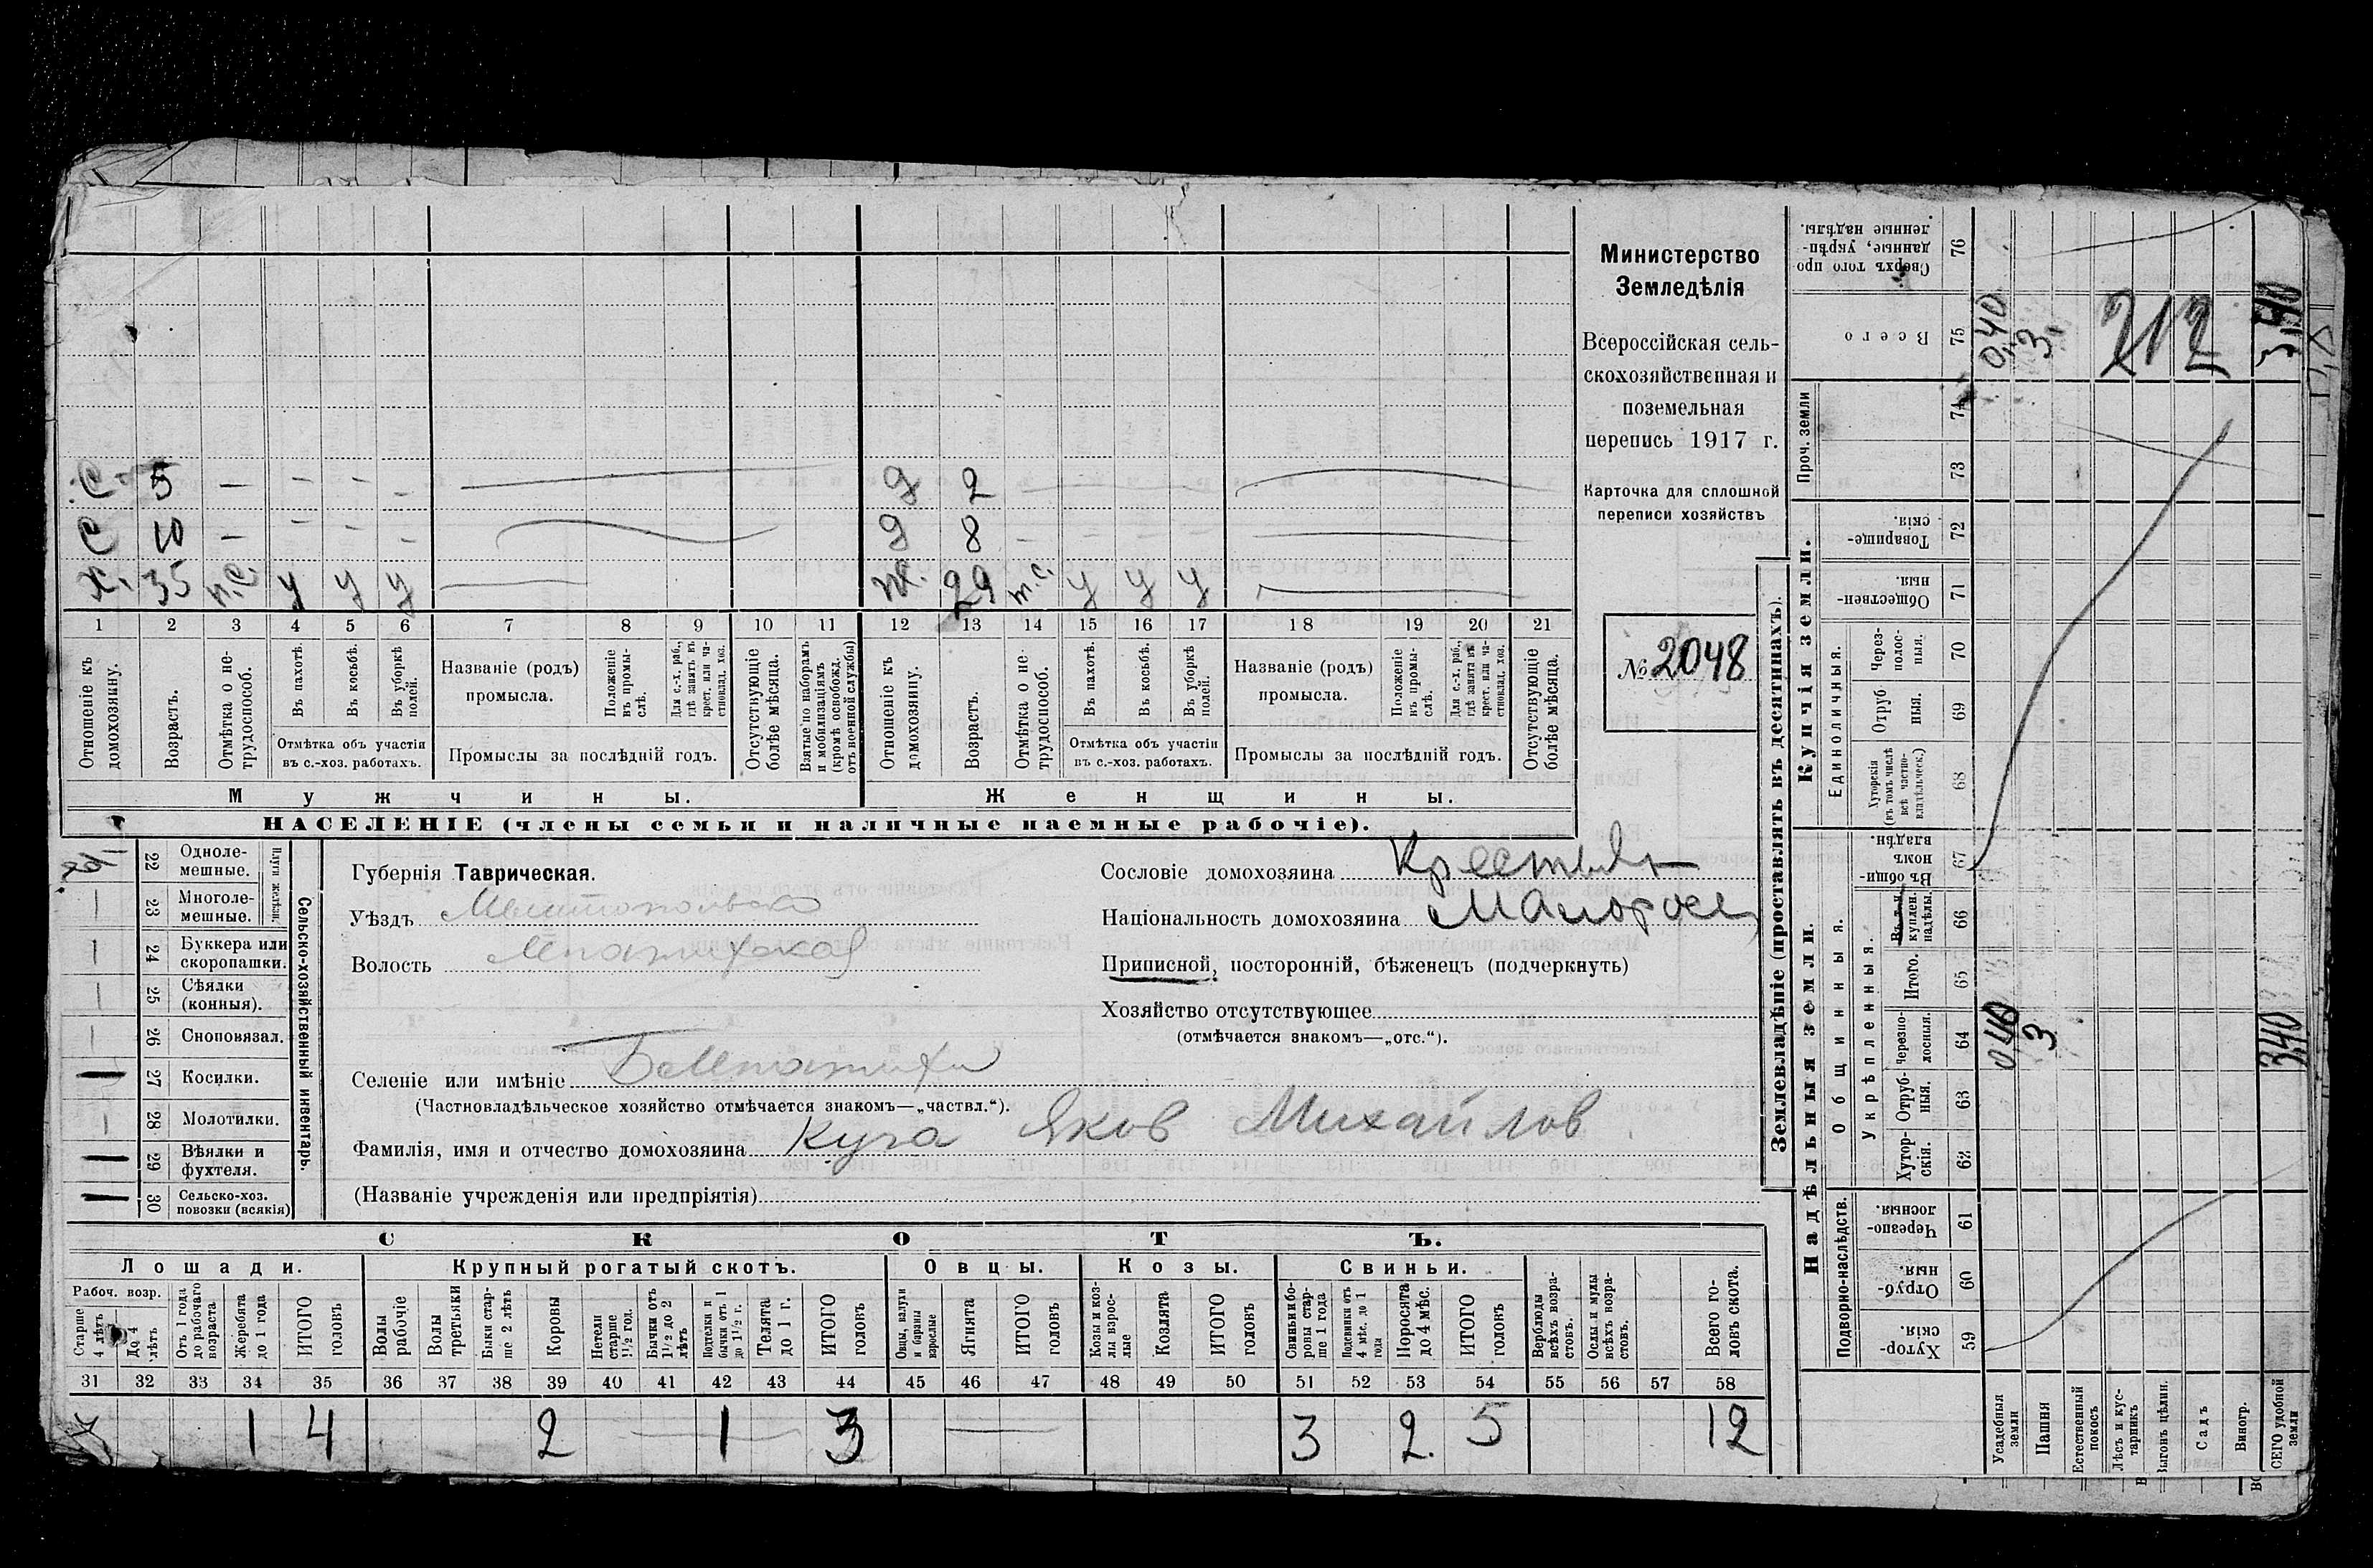 Министерство
Земледѣлія
Всероссійская сель-
скохозяйственная и
поземельная
перепись 1917 г.
Карточка для сплошной
переписи хозяйствъ
№ 2048
С 5 — — — — — д 2
С 10 — — — — — д 8
х. 35 п.с. у у у — ж. 29 п.с. у у у —
1 2 3 4 5 6 7 8 9 10 11 12 13 14 15 16 17 18 19 20 21
Отношеніе къ домохозяину.
Возрастъ.
Отмѣтка о не-трудоспособ.
Въ пахотѣ.
Въ косьбѣ.
Въ уборкѣ полей.
Отмѣтка объ участіи въ с.-хоз. работахъ.
Названіе (родъ) промысла.
Положеніе въ промы-слѣ.
Для с.-х. раб., гдѣ занятъ въ крест. или ча-стновлад. хоз.
Промыслы за послѣдній годъ.
Отсутствующіе болѣе мѣсяца.
Взятые по наборамъ и мобилизаціямъ (кромѣ освобожд. отъ военной службы)
Отношеніе къ домохозяину.
Возрастъ.
Отмѣтка о не-трудоспособ.
Въ пахотѣ.
Въ косьбѣ.
Въ уборкѣ полей.
Отмѣтка объ участіи въ с.-хоз. работахъ.
Названіе (родъ) промысла.
Положеніе въ промы-слѣ.
Для с.-х. раб., гдѣ занята въ крест. или ча-стновлад. хоз.
Промыслы за послѣдній годъ.
Отсутствующіе болѣе мѣсяца.
Мужчины. Женщины.
НАСЕЛЕНІЕ (члены семьи и наличные наемные рабочіе).
Сельско-хозяйственный инвентарь.
Плуги желѣзн.
22 Одноле-мешные.
— 23 Многоле-мешные.
— 24 Буккера или скоропашки.
— 25 Сѣялки (конныя).
— 26 Сноповязал.
— 27 Косилки.
— 28 Молотилки.
— 29 Вѣялки и фухтеля.
— 30 Сельско-хоз. повозки (всякія)
Губернія Таврическая.
Уѣздъ
Волость
Сословіе домохозяина
Національность домохозяина Малорос
Приписной, посторонній, бѣженецъ (подчеркнуть)
Хозяйство отсутствующее
(отмѣчается знакомъ—„отс.“).
Селеніе или имѣніе
(Частновладѣльческое хозяйство отмѣчается знакомъ—„частвл.“).
Фамилія, имя и отчество домохозяина Куча Яков Михайлов
(Названіе учрежденія или предпріятія)
СКОТЪ.
Лошади. Крупный рогатый скотъ. Овцы. Козы. Свиньи.
Рабоч. возр.
Старше 4 лѣтъ
До 4 лѣтъ
Отъ 1 года до рабочаго возраста
Жеребята до 1 года
ИТОГО головъ
Волы рабочіе
Волы третьяки
Быки стар-ше 2 лѣтъ
Коровы
Нетели старше 1½ год.
Бычки отъ 1½ до 2 лѣтъ
Подтелки и бычки отъ 1 до 1½ г.
Телята до 1 г.
ИТОГО головъ
Овцы, валухи и бараны взрослые
Ягнята
ИТОГО головъ
Козы и коз-лы взрос-лые
Козлята
ИТОГО головъ
Свиньи и бо-ровы стар-ше 1 года
Подсвинки отъ 4 мѣс. до 1 года
Поросята до 4 мѣс.
ИТОГО головъ
Верблюды всѣхъ возра-стовъ.
Ослы и мулы всѣхъ возра-стовъ.
Всего го-ловъ скота.
31 32 33 34 35 36 37 38 39 40 41 42 43 44 45 46 47 48 49 50 51 52 53 54 55 56 57 58
1 4 2 1 3 — 3 2 5 12
Землевладѣніе (проставлять въ десятинахъ).
Купчія земли.
Надѣльныя земли.
Проч. земли
Единоличныя.
Общинныя.
Укрѣпленныя.
Подворно-наслѣдств.
Сверхъ того про-данные, укрѣп-ленные надѣлы. 76
Всего 75 0,40 3, 212 3,40
74
73
Товарище-скія. 72
Обществен-ныя. 71
Через-полос-ныя. 70
Отруб-ныя. 69
Хуторскія (въ томъ числѣ всѣ частно-владѣльческ.) 68
Въ общин-номъ владѣн. 67
куплен. надѣлы. 66
Итого. 65
Черезпо-лосныя. 64 0,40 3 3,40
Отруб-ныя. 63
Хутор-скія. 62
Черезпо-лосныя. 61
Отруб-ныя. 60
Хутор-скія. 59
Усадебныя земли
Пашня
Естественный покосъ
Лѣсъ и кус-тарникъ
Выгонъ цѣлин.
Садъ
Виногр.
ВСЕГО удобной земли